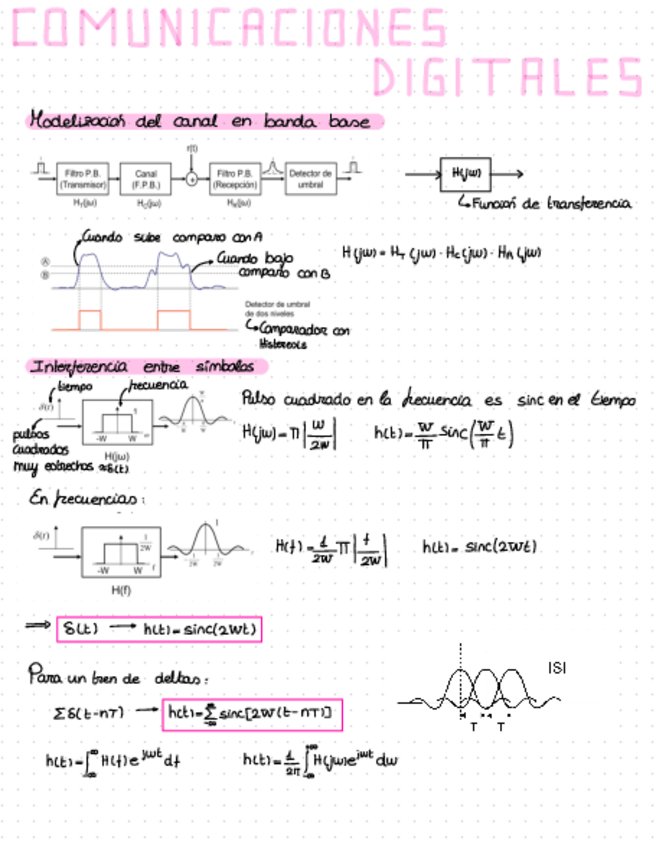 COMUNICACIONES
DIGITALES
Modelización del canal en banda base
r(t)
Filtro P.B. (Transmisor)
Canal (F.P.B.)
+
Filtro P.B. (Recepción)
Detector de umbral
H(jω)
H_T(jω)
H_C(jω)
H_R(jω)
Función de transferencia
Cuando sube comparo con A
Cuando bajo
comparo con B
A
B
H(jω) = H_T(jω) · H_C(jω) · H_R(jω)
Detector de umbral
de dos niveles
Comparador con
Histeresis
Interferencia entre símbolos
tiempo
frecuencia
δ(t)
1
-W W ω
H(jω)
pulsos
cuadrados
muy estrechos ≈δ(t)
Pulso cuadrado en la frecuencia es sinc en el tiempo
H(jω) = Π|ω/2W| h(t) = W/π sinc(W/π t)
En frecuencias:
δ(t)
1/2W
-W W f
H(f)
1
-1/2W 1/2W
H(f) = 1/2W Π|f/2W| h(t) = sinc(2Wt)
⟹ δ(t) → h(t) = sinc(2Wt)
Para un tren de deltas:
Σδ(t-nT) → h(t) = Σ_{-∞}^{∞} sinc[2W(t-nT)]
ISI
T T
h(t) = ∫_{-∞}^{∞} H(f) e^{jωt} df h(t) = 1/2π ∫_{-∞}^{+∞} H(jω) e^{jωt} dω